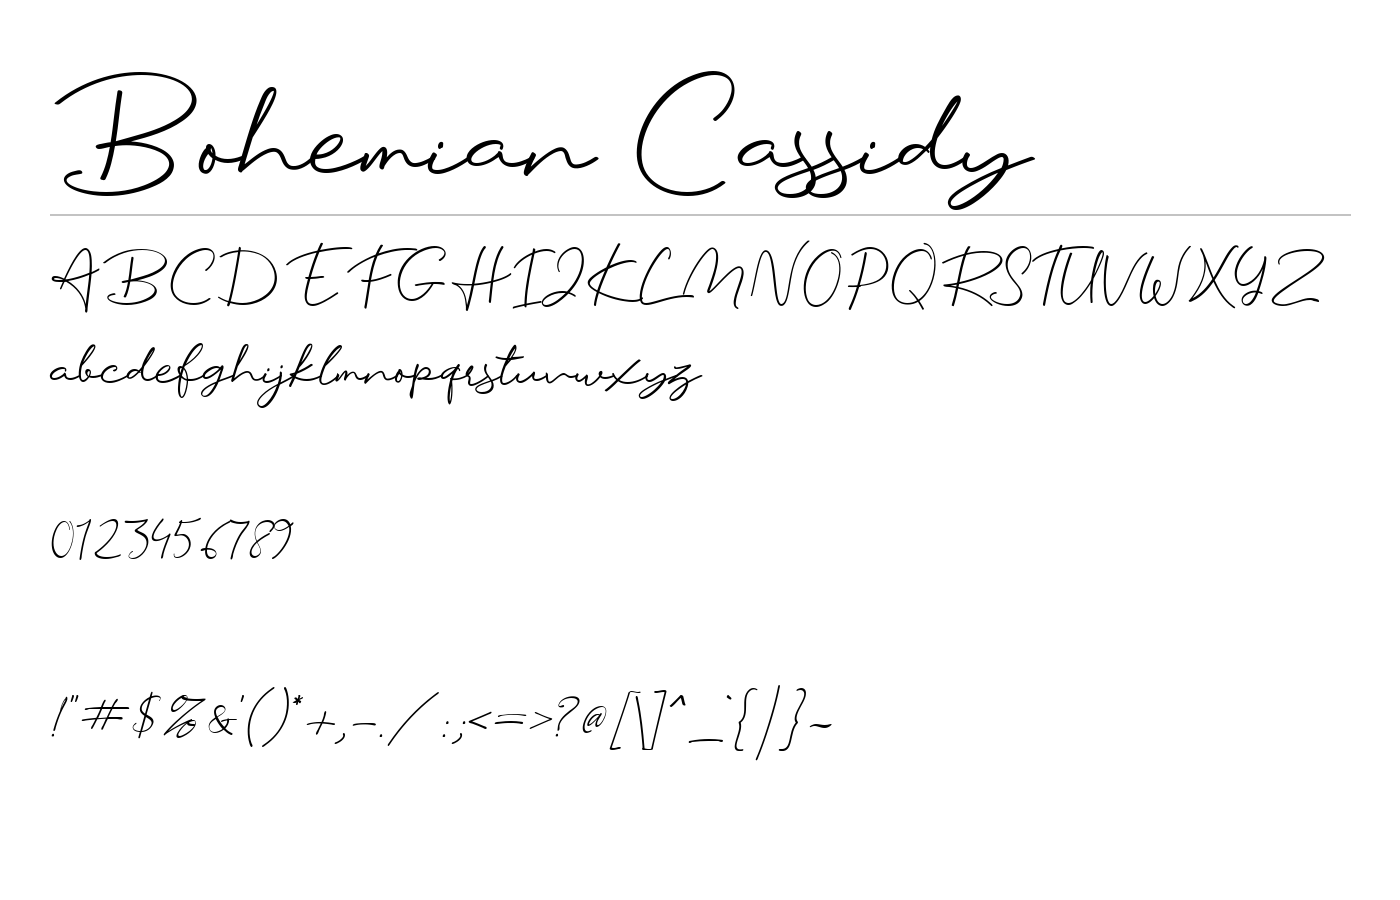 Bohemian Cassidy
ABCDEFGHIJKLMNOPQRSTUVWXYZ
abcdefghijklmnopqrstuvwxyz
0123456789
!"#$%&'()*+,-./:;<=>?@[\]^_`{|}~